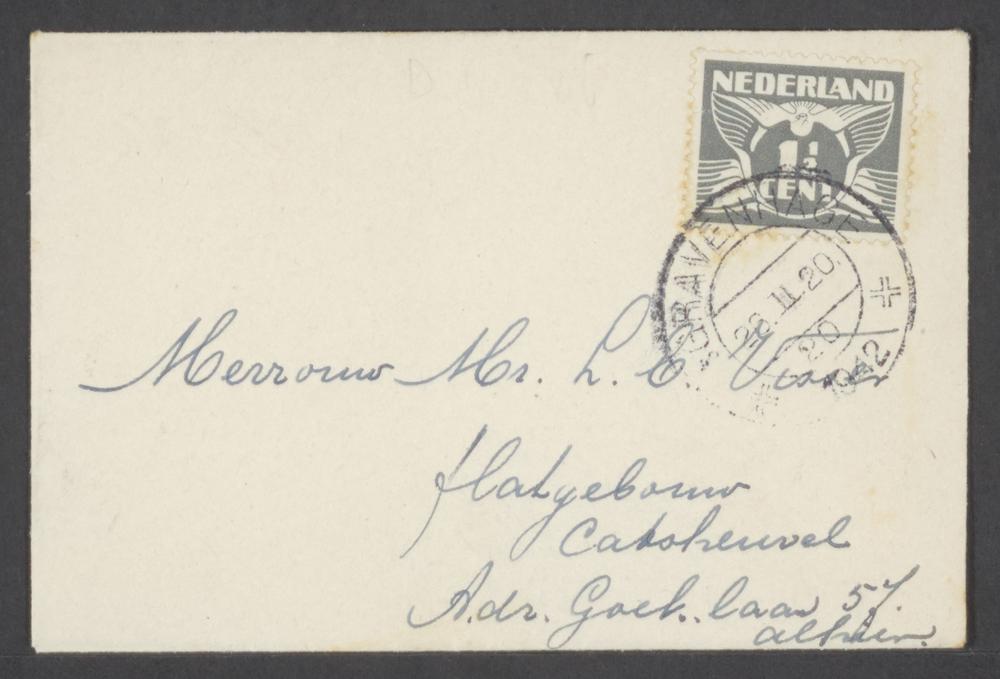 NEDERLAND
1½
CENT
'SGRAVENHAGE
26.II.20.
20
1942
Mevrouw Mr. L. E. Visser
flatgebouw
Catsheuvel
Adr. Goek. laan 57.
alhier.